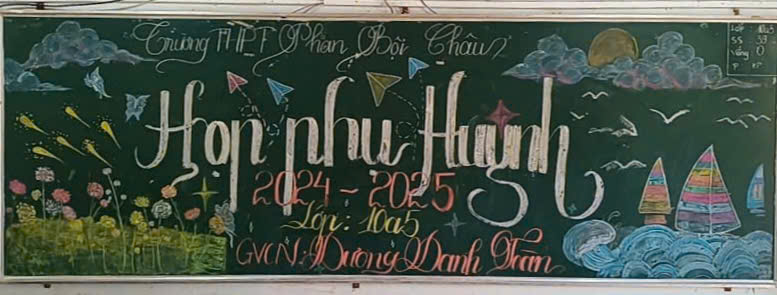 Trường THPT Phan Bội Châu
Họp phụ Huynh
2024 - 2025
Lớp: 10a5
GVCN: Dương Danh Toàn
Lớp
SS 39
Vắng 0
P